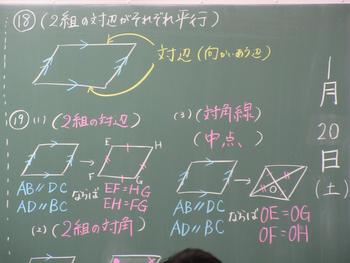 ⑱(2組の対辺がそれぞれ平行)
対辺(向かいあう辺)
⑲(1)(2組の対辺)
E
H
F
G
AB∥DC
AD∥BC
ならば
EF=HG
EH=FG
(2)(2組の対角)
(3)(対角線)
(中点)
O
AB∥DC
AD∥BC
ならば
OE=OG
OF=OH
1月20日(土)